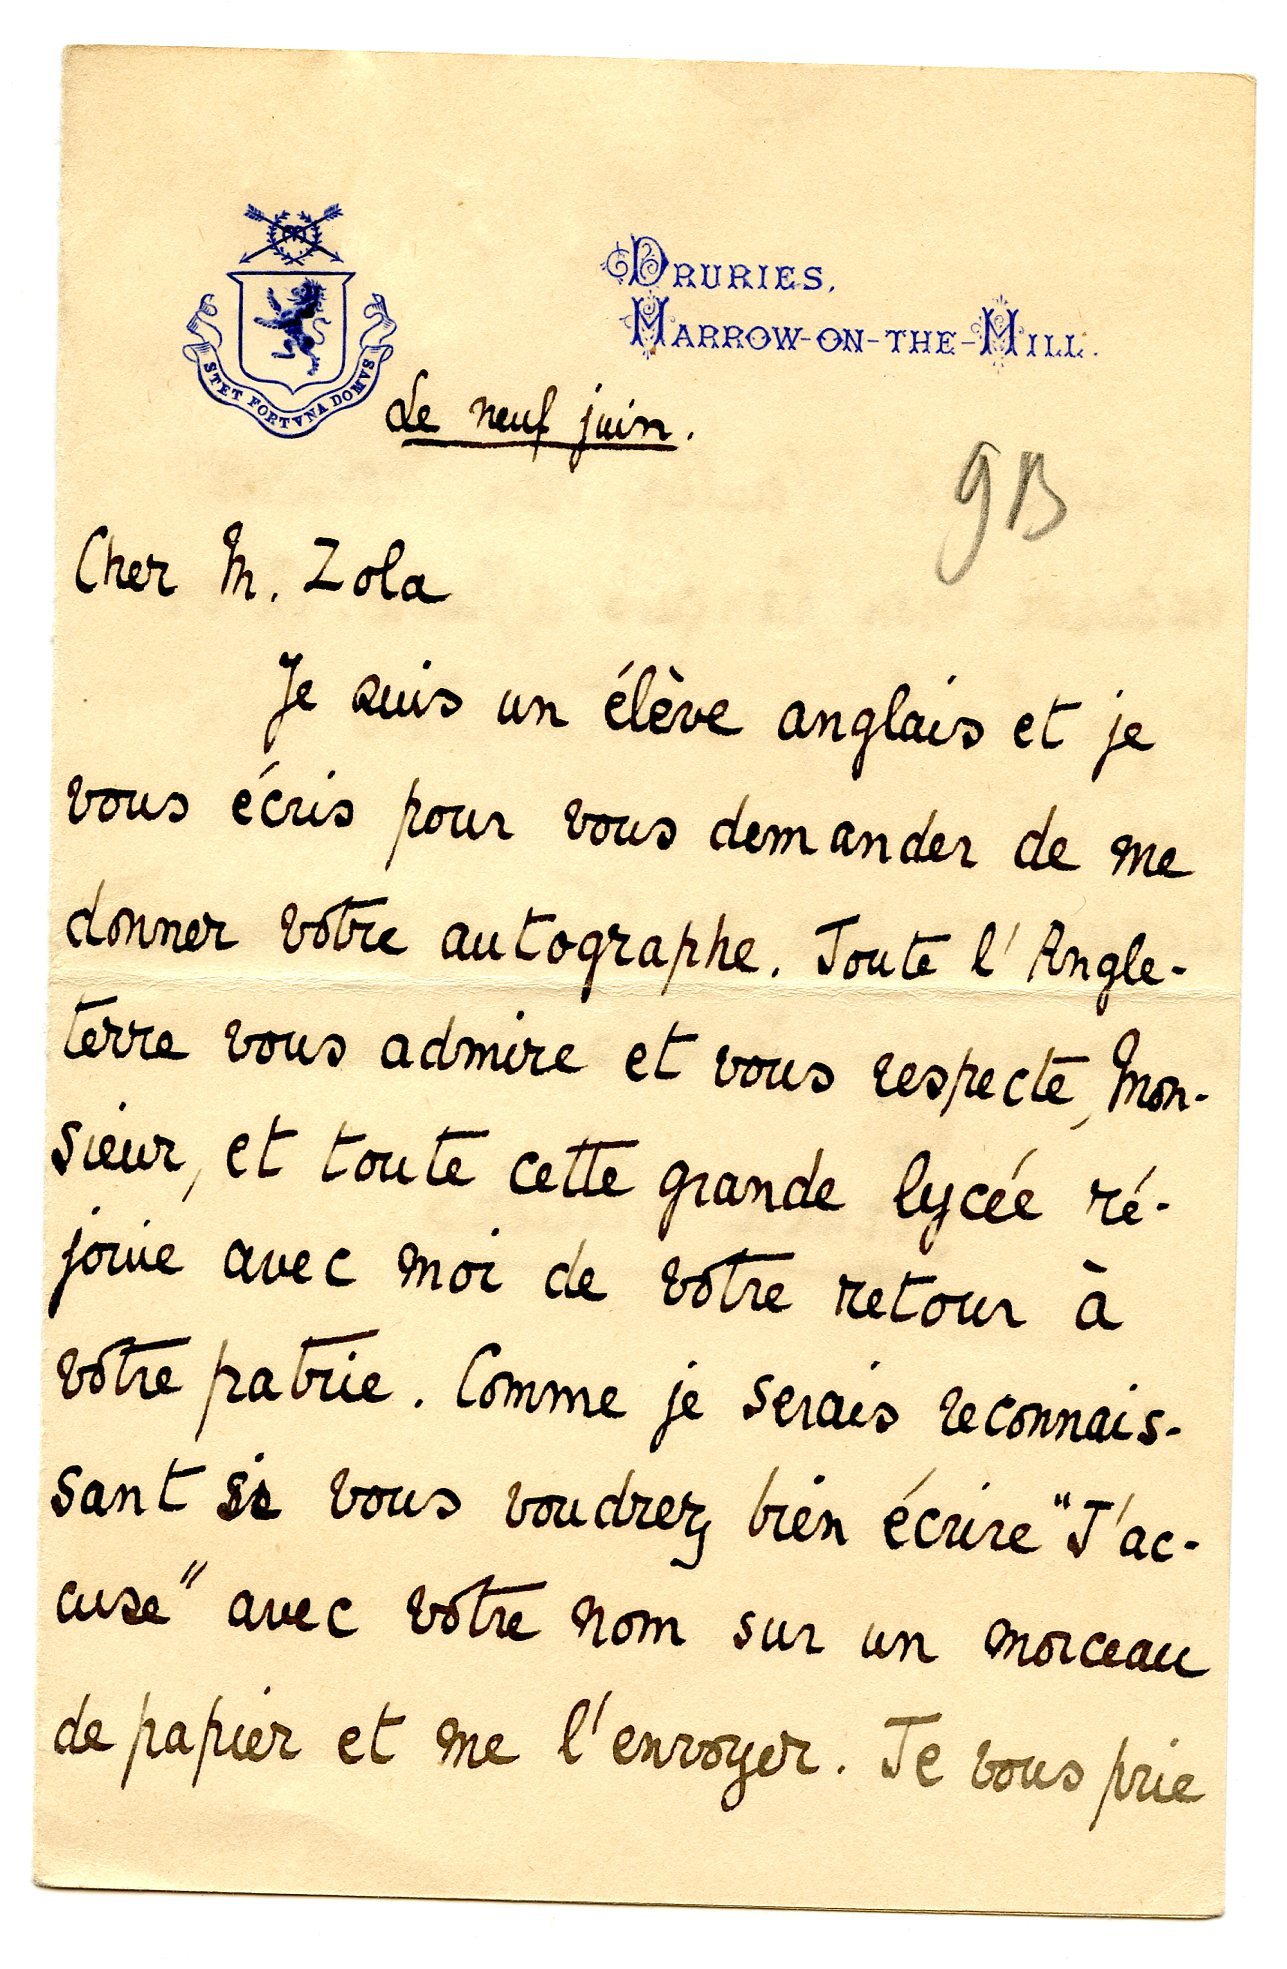 DRURIES,
HARROW-ON-THE-HILL.
STET FORTVNA DOMVS
Le neuf juin.
9B
Cher M. Zola
Je suis un élève anglais et je
vous écris pour vous demander de me
donner vôtre autographe. Toute l'Angle-
terre vous admire et vous respecte, Mon-
sieur, et toute cette grande lycée ré-
jouie avec moi de vôtre retour à
vôtre patrie. Comme je serais reconnais-
sant si vous voudrez bien écrire "J'ac-
cuse" avec vôtre nom sur un morceau
de papier et me l'envoyer. Je vous prie